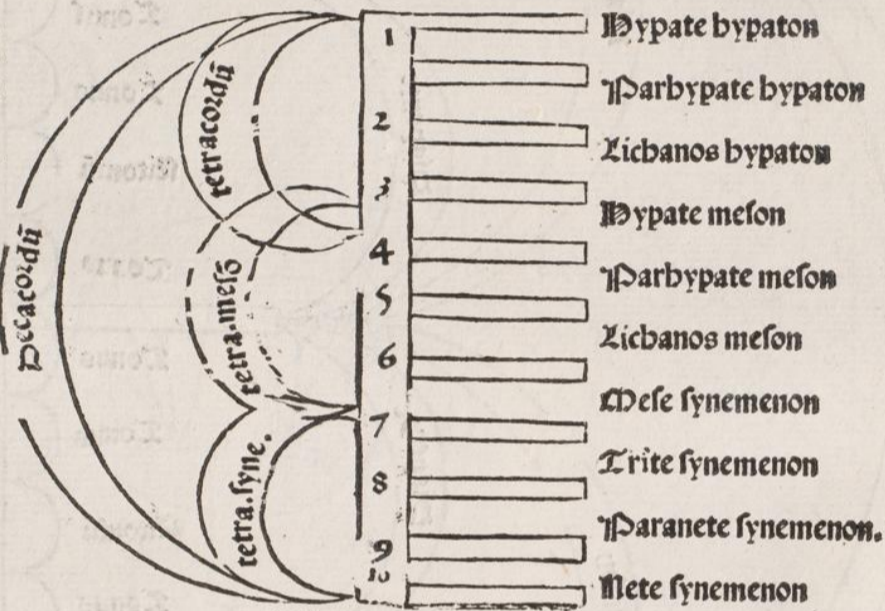 Decacordū
tetracordū
tetra.mesō
tetra.syne.
1
2
3
4
5
6
7
8
9
10
Hypate hypaton
Parhypate hypaton
Lichanos hypaton
Hypate meson
Parhypate meson
Lichanos meson
Mese synemenon
Trite synemenon
Paranete synemenon.
Nete synemenon